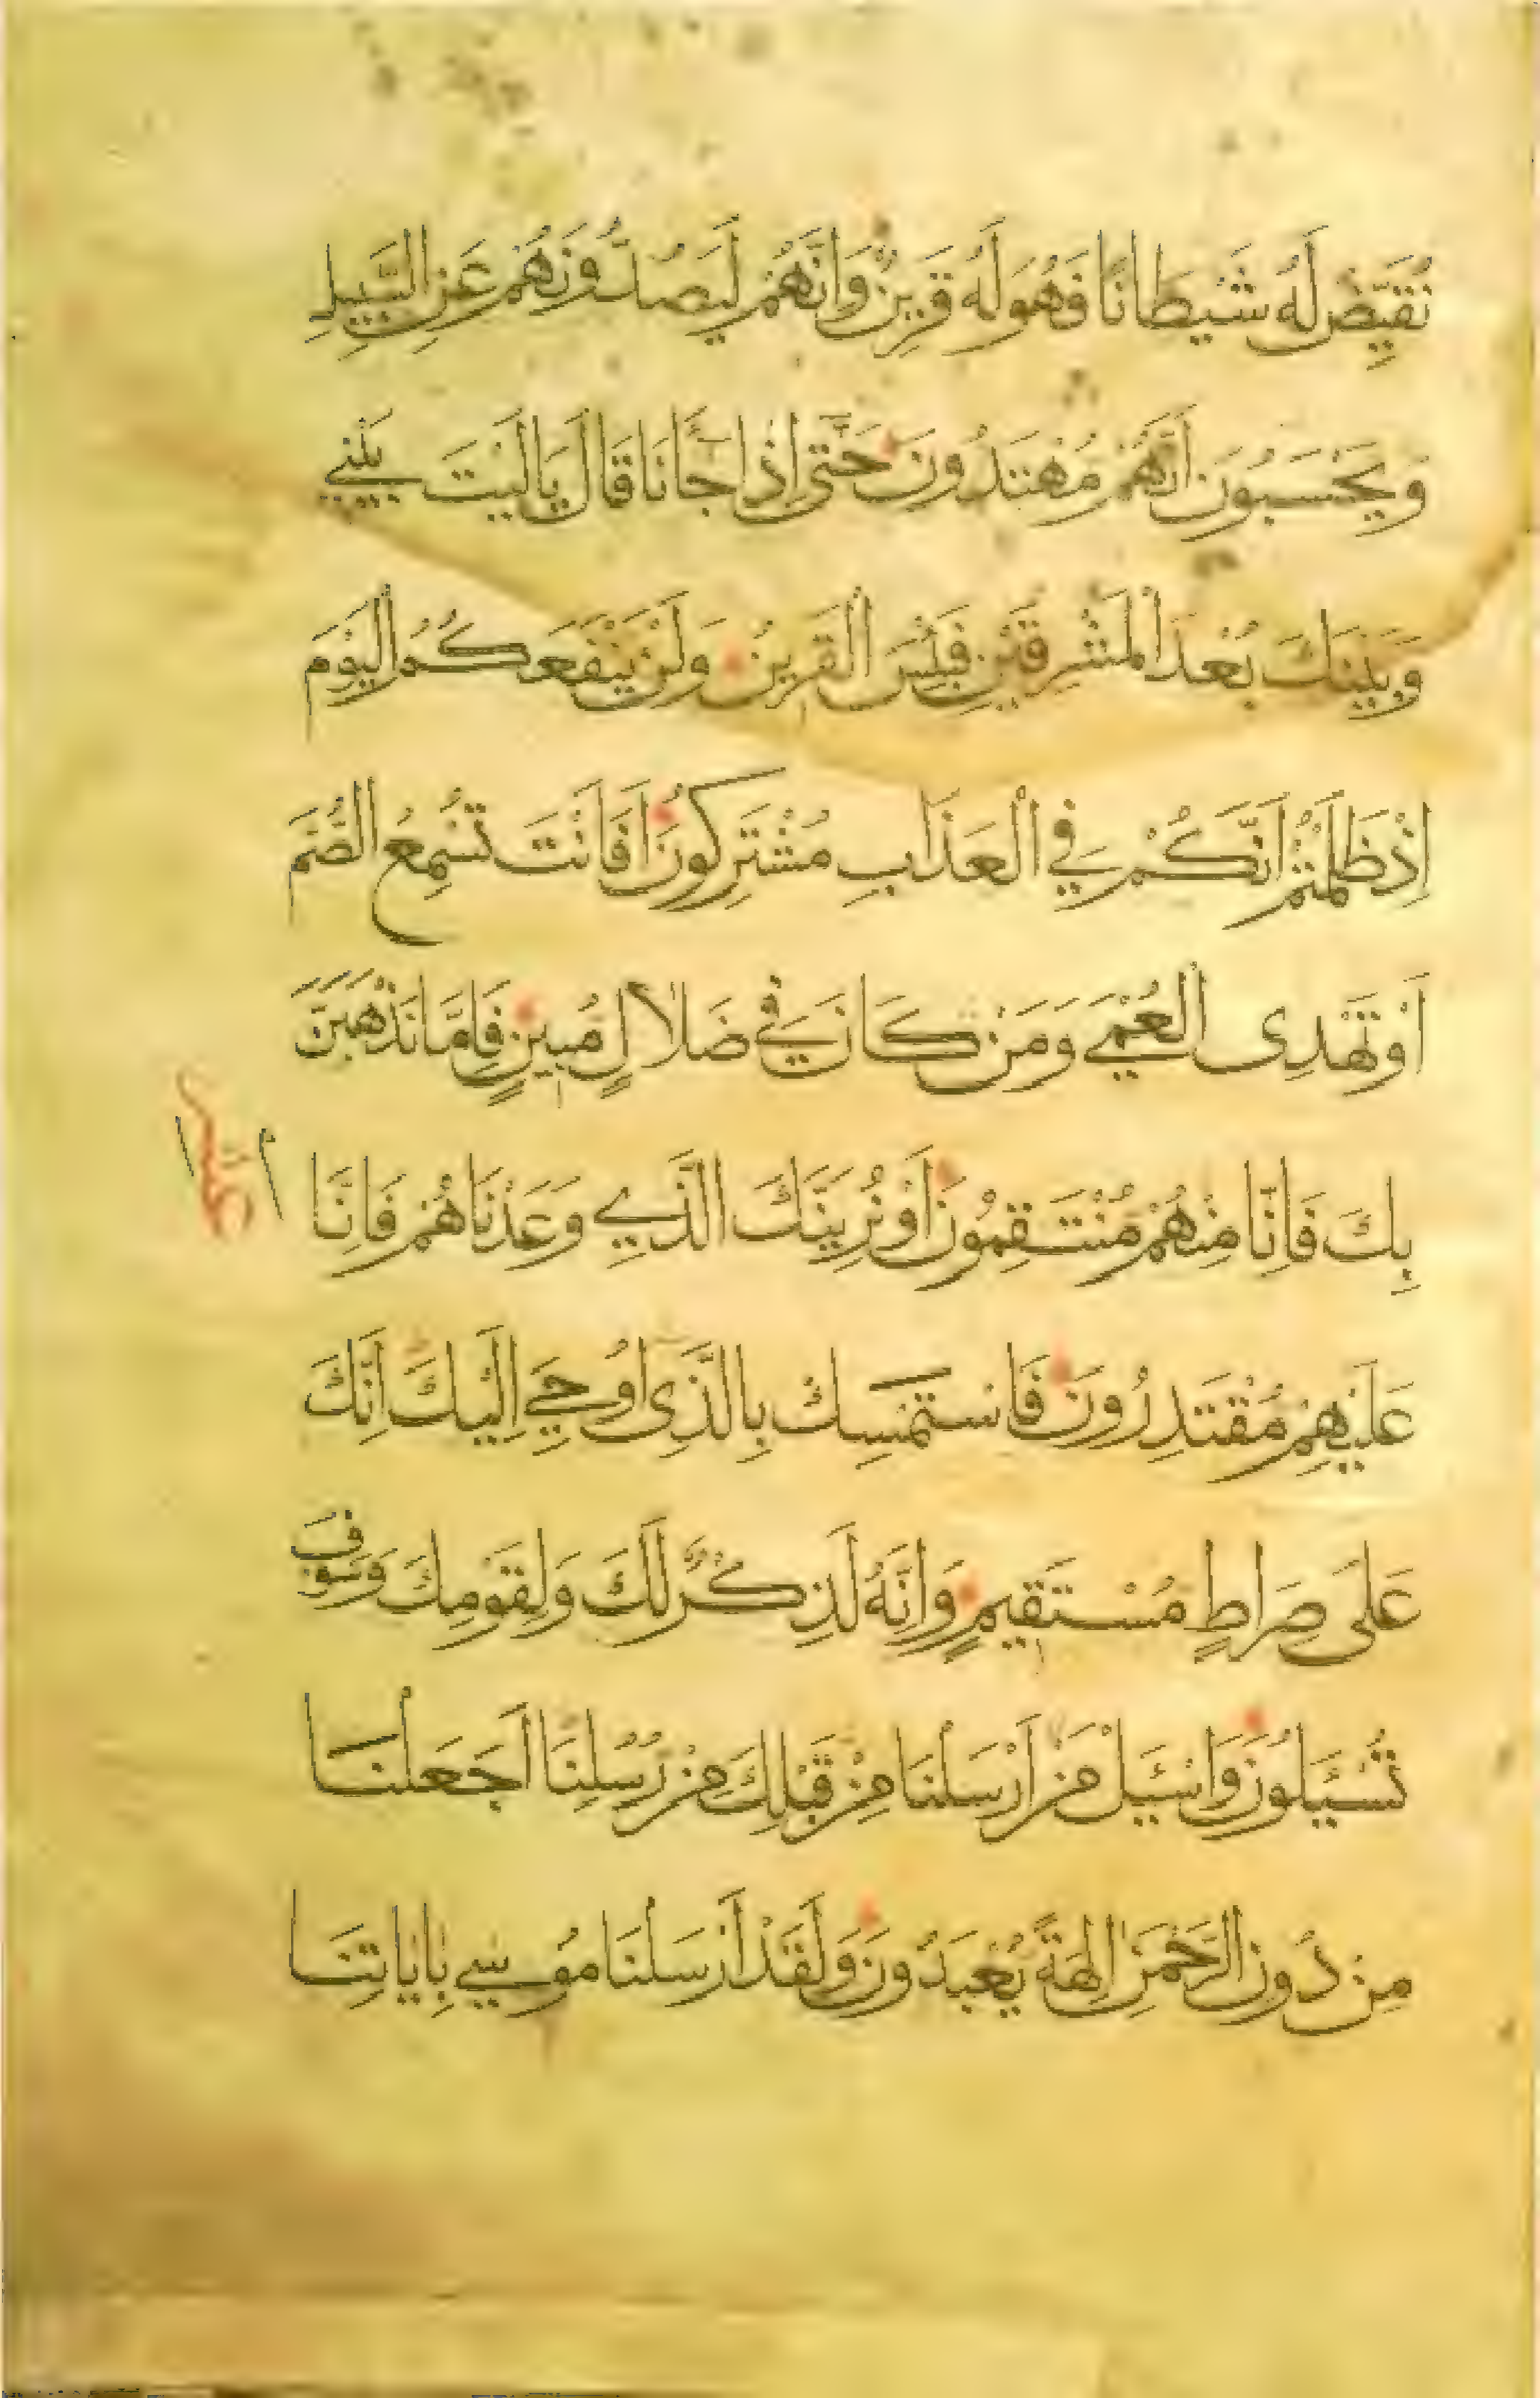 نُقَيِّضْ لَهُ شَيْطَانًا فَهُوَ لَهُ قَرِينٌ وَاِنَّهُمْ لَيَصُدُّونَهُمْ عَنِ السَّبِيلِ
وَيَحْسَبُونَ اَنَّهُمْ مُهْتَدُونَ حَتَّى اِذَا جَانَا قَالَ يَا لَيْتَ بَيْنِي
وَبَيْنَكَ بُعْدَ الْمَشْرِقَيْنِ فَبِئْسَ الْقَرِينُ وَلَنْ يَنْفَعَكُمُ الْيَوْمَ
اِذْ ظَلَمْتُمْ اَنَّكُمْ فِي الْعَذَابِ مُشْتَرِكُونَ اَفَاَنْتَ تُسْمِعُ الصُّمَّ
اَوْ تَهْدِى الْعُمْيَ وَمَنْ كَانَ فِي ضَلَالٍ مُبِينٍ فَاِمَّا نَذْهَبَنَّ
بِكَ فَاِنَّا مِنْهُمْ مُنْتَقِمُونَ اَوْ نُرِيَنَّكَ الَّذِي وَعَدْنَاهُمْ فَاِنَّا
عَلَيْهِمْ مُقْتَدِرُونَ فَاسْتَمْسِكْ بِالَّذِى اُوحِيَ اِلَيْكَ اِنَّكَ
عَلَى صِرَاطٍ مُسْتَقِيمٍ وَاِنَّهُ لَذِكْرٌ لَكَ وَلِقَوْمِكَ وَسَوْفَ
تُسْئَلُونَ وَاسْئَلْ مَنْ اَرْسَلْنَا مِنْ قَبْلِكَ مِنْ رُسُلِنَا اَجَعَلْنَا
مِنْ دُونِ الرَّحْمَنِ اٰلِهَةً يُعْبَدُونَ وَلَقَدْ اَرْسَلْنَا مُوسٰي بِاٰيَاتِنَا